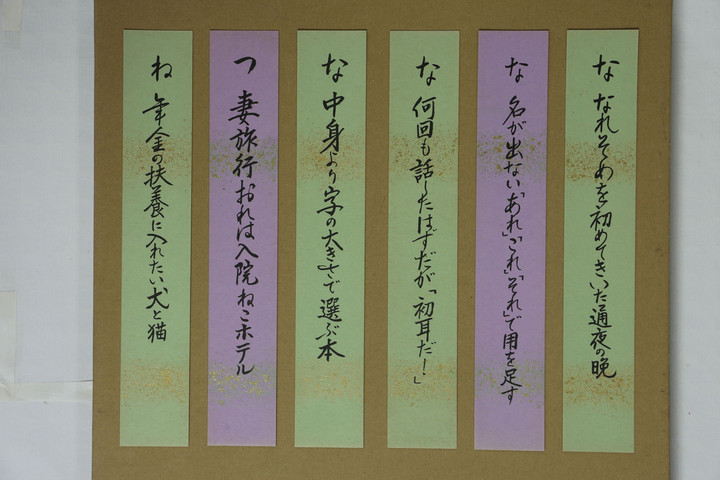 な なれそめを初めてきいた通夜の晩
な 名が出ない「あれ」「これ」「それ」で用を足す
な 何回も話したはずだが「初耳だ!」
な 中身より字の大きさで選ぶ本
つ 妻旅行おれは入院ねこホテル
ね 年金の扶養に入れたい犬と猫